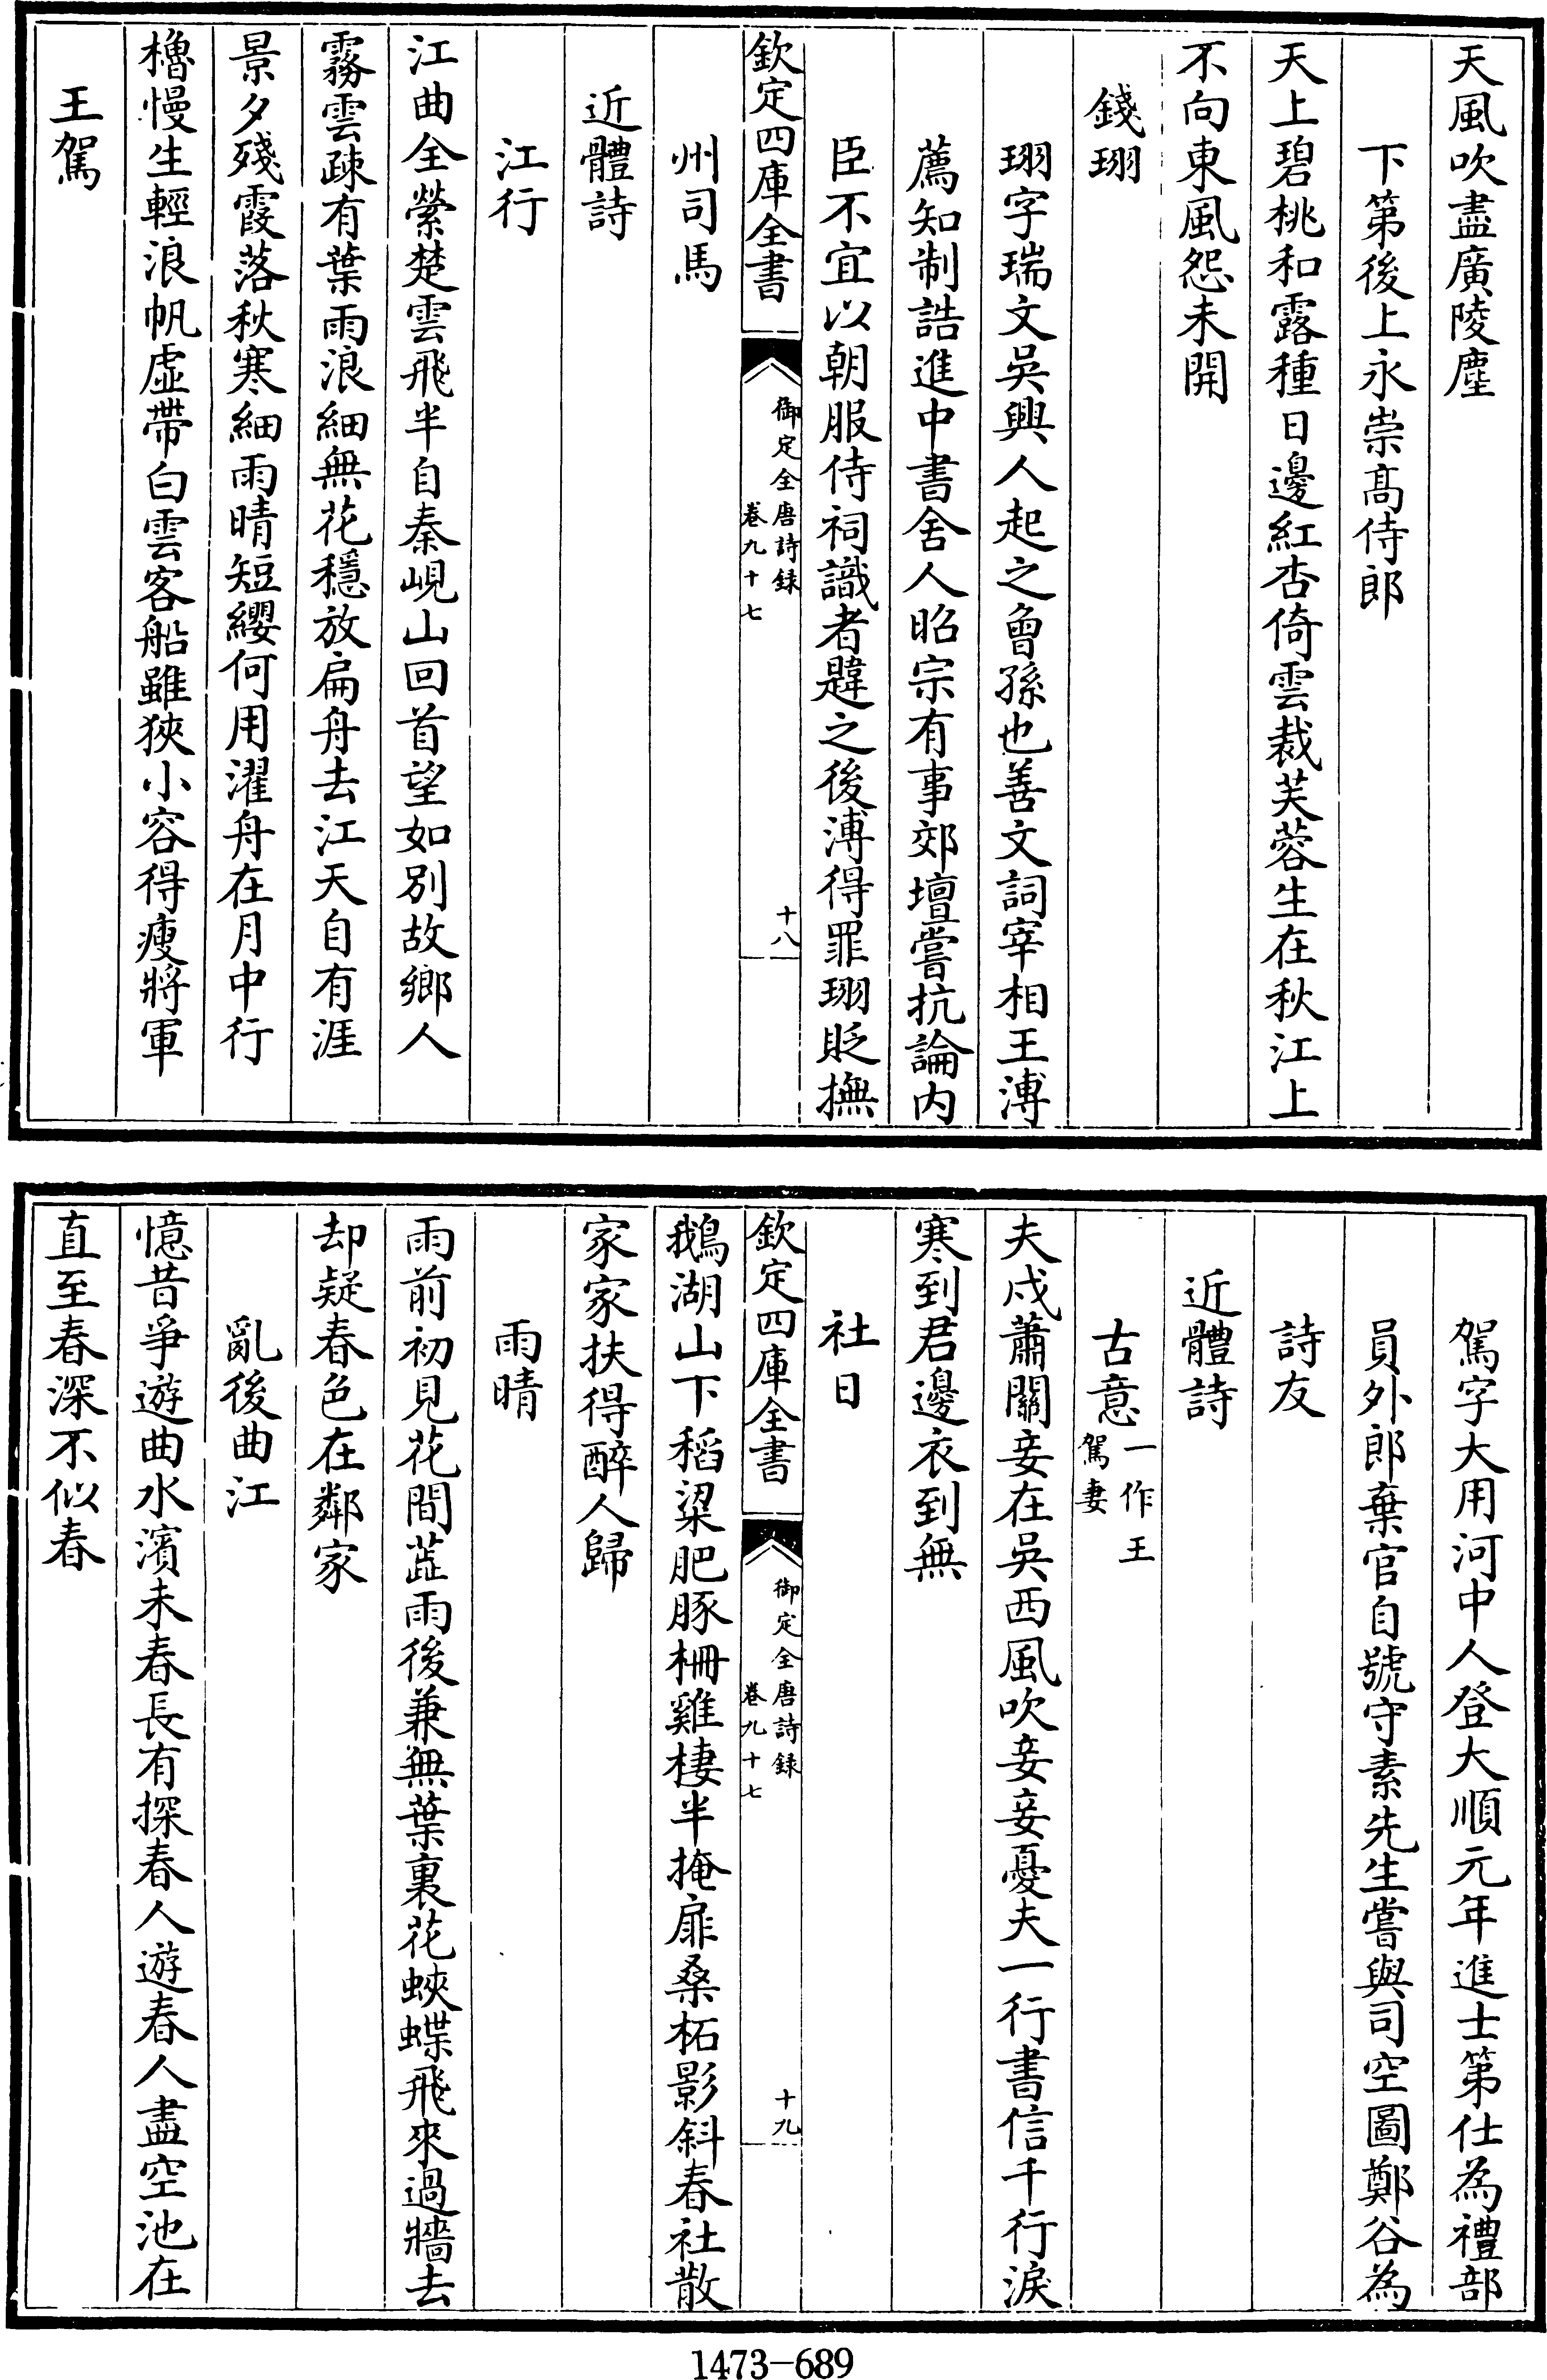 天風吹盡廣陵塵
下第後上永崇髙侍郎
天上碧桃和露種日邊紅杏倚雲裁芙蓉生在秋江上
不向東風怨未開
錢珝
珝字瑞文吳興人起之曾孫也善文詞宰相王溥
薦知制誥進中書舍人昭宗有事郊壇嘗抗論内
臣不宜以朝服侍祠識者韙之後溥得罪珝貶撫
欽定四庫全書
御定全唐詩録
卷九十七
十八
州司馬
近體詩
江行
江曲全縈楚雲飛半自秦峴山回首望如別故鄉人
霧雲疎有葉雨浪細無花穩放扁舟去江天自有涯
景夕殘霞落秋寒細雨晴短纓何用濯舟在月中行
櫓慢生輕浪帆虛帶白雲客船雖狹小容得瘦將軍
王駕
駕字大用河中人登大順元年進士第仕為禮部
員外郎棄官自號守素先生嘗與司空圖鄭谷為
詩友
近體詩
古意一作王駕妻
夫戍蕭關妾在吳西風吹妾妾憂夫一行書信千行淚
寒到君邊衣到無
社日
欽定四庫全書
御定全唐詩録
卷九十七
十九
鵝湖山下稻粱肥豚柵雞棲半掩扉桑柘影斜春社散
家家扶得醉人歸
雨晴
雨前初見花間蕋雨後兼無葉裏花蛺蝶飛來過牆去
却疑春色在鄰家
亂後曲江
憶昔爭遊曲水濱未春長有探春人遊春人盡空池在
直至春深不似春
1473-689